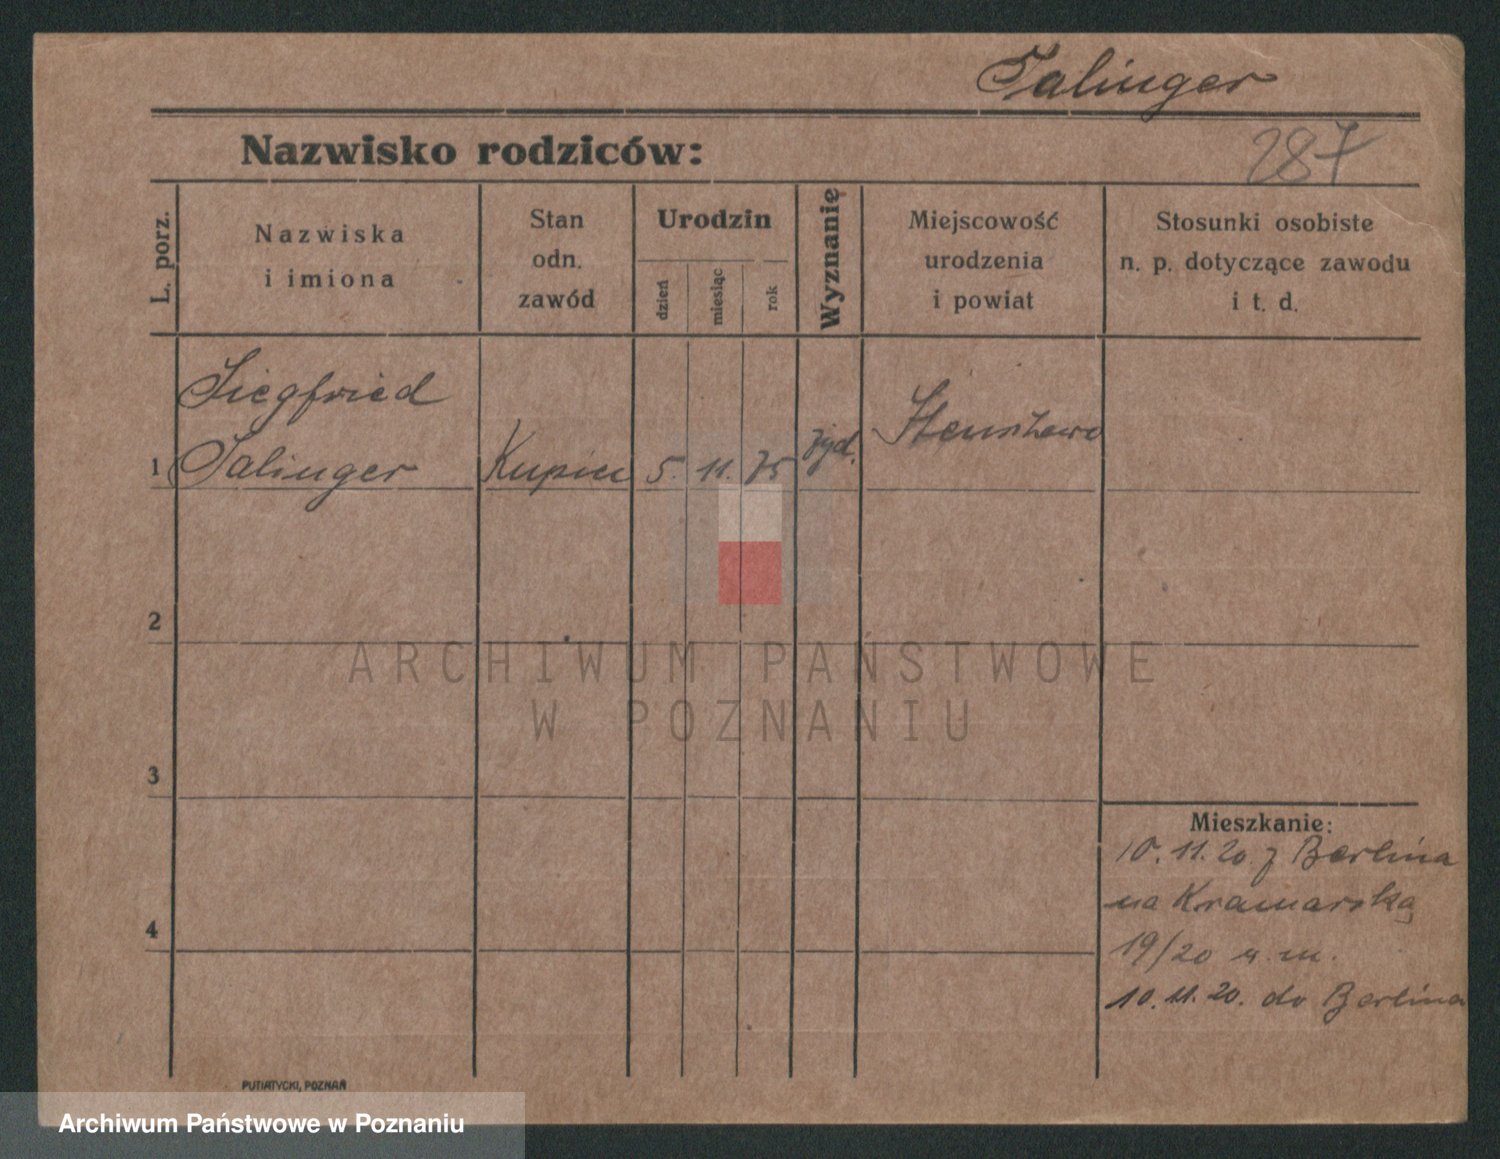 Salinger
Nazwisko rodziców:
287
L. porz.
Nazwiska
i imiona
Stan
odn.
zawód
Urodzin
dzień
miesiąc
rok
Wyznanię
Miejscowość
urodzenia
i powiat
Stosunki osobiste
n. p. dotyczące zawodu
i t. d.
Siegfried
1 Salinger Kupiec 5. 11. 75 żyd.
2
3
4
Mieszkanie:
10. 11. 20 z Berlina
na Kramarską
19/20 u.m.
10. 11. 20. do Berlina
PUTIATYCKI, POZNAŃ
ARCHIWUM PAŃSTWOWE
W POZNANIU
Archiwum Państwowe w Poznaniu